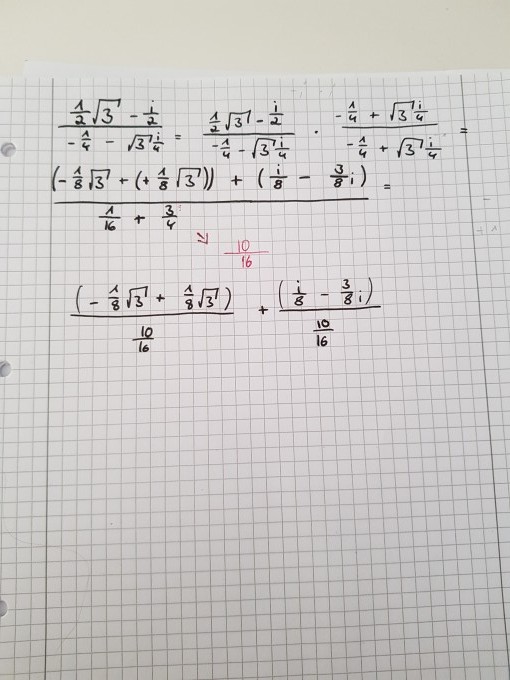 (1/2 √3 - i/2) / (-1/4 - √3 i/4) = (1/2 √3 - i/2) / (-1/4 - √3 i/4) · (-1/4 + √3 i/4) / (-1/4 + √3 i/4) =
((-1/8 √3 + (+1/8 √3)) + (i/8 - 3/8 i)) / (1/16 + 3/4) =
⇒ 10/16
(-1/8 √3 + 1/8 √3) / (10/16) + (i/8 - 3/8 i) / (10/16)